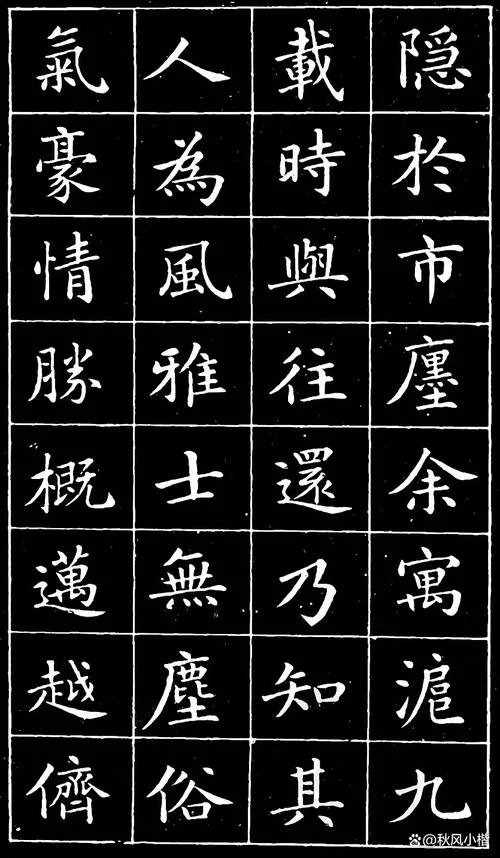 隱於市廛余寓滬九
載時與往還乃知其
人為風雅士無塵俗
氣豪情勝概邁越儕
@秋风小楷